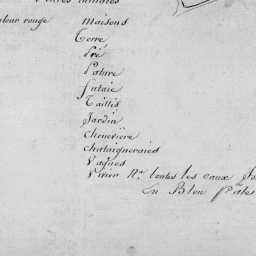 uleur rouge Maisons
Terre
Pré
Pature
futaie
Taillis
Jardin
Cheneviere
Chataigneraies
Vagues
Vivier Nta. toutes les eaux
En Bleu Pale